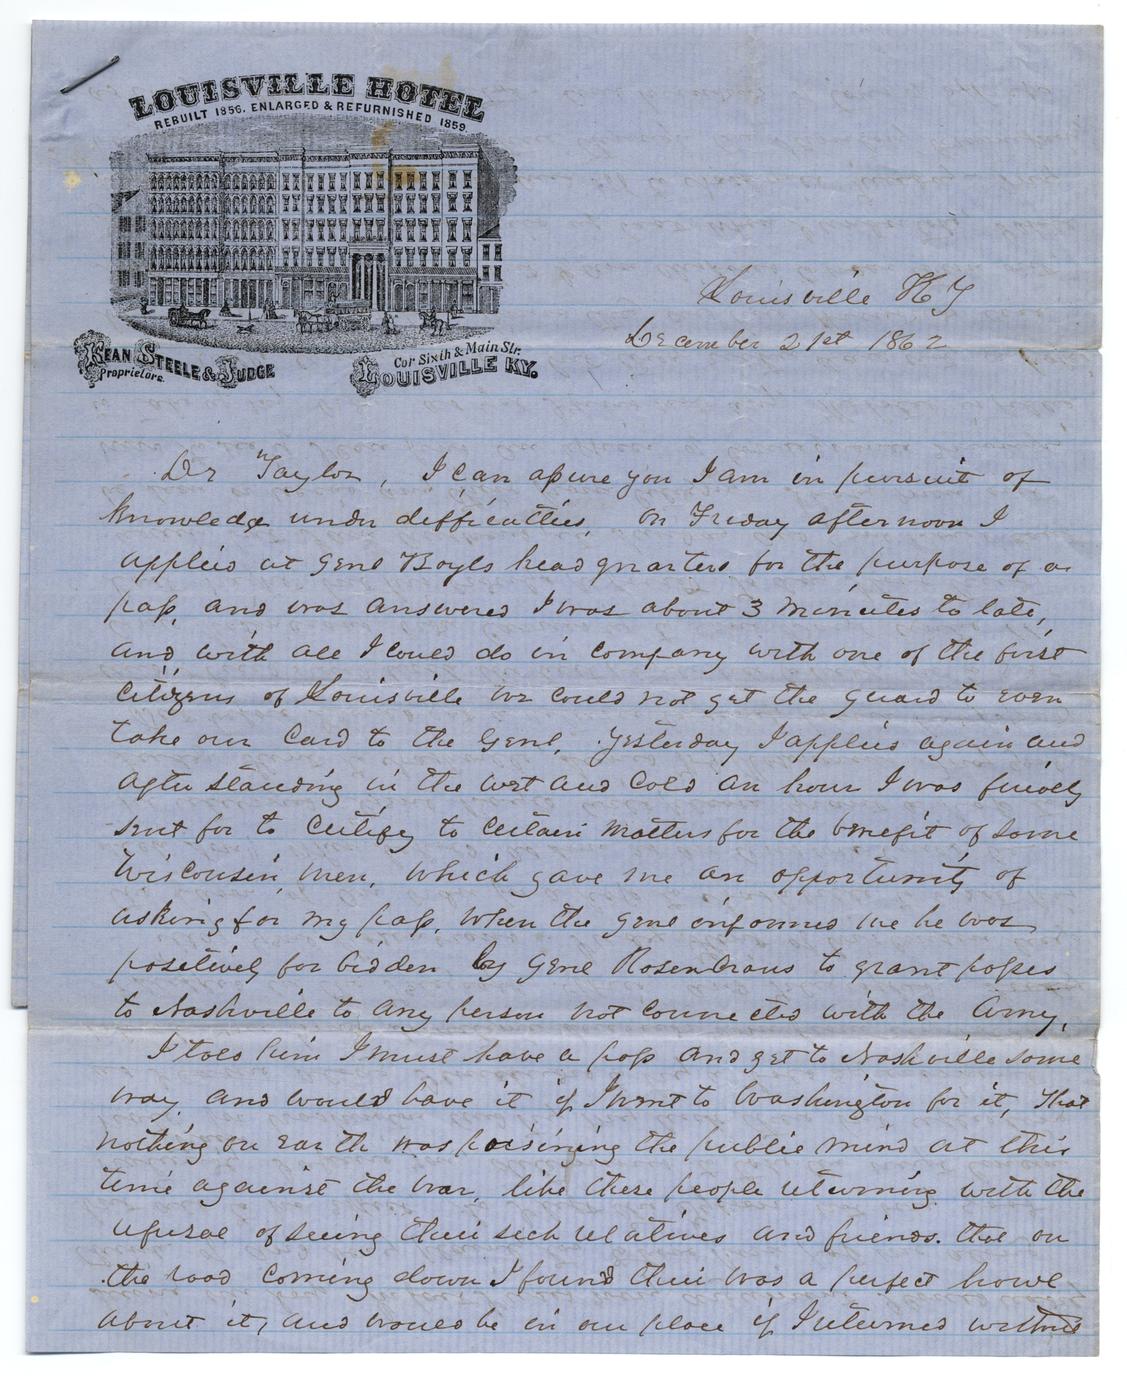 LOUISVILLE HOTEL
REBUILT 1856. ENLARGED & REFURNISHED 1859.
KEAN STEELE & JUDGE
Proprietors.
Cor Sixth & Main Str.
LOUISVILLE KY.
Louisville Ky
December 21st 1862
Dr Taylor, I can assure you I am in pursuit of
knowledge under difficulties, on Friday afternoon I
applied at Genl Boyls head quarters for the purpose of a
pass, and was answered I was about 3 minutes to late,
and, with all I could do in company with one of the first
Citizens of Louisville we could not get the guard to even
take our Card to the Genl. Yesterday I applied again and
after standing in the wet and cold an hour I was finely
sent for to certify to certain matters for the benefit of some
Wisconsin men, which gave me an opportunity of
asking for my pass. When the Genl informed me he was
positively for bidden by Genl Rosencrans to grant passes
to Nashville to any person not connected with the Army.
I told him I must have a pass and get to Nashville some
way, and would have it if I went to Washington for it, that
nothing on earth was poisining the public mind at this
time against the war, like these people returning with the
refusal of seeing their sick relatives and friends. that on
the road coming down I found their was a perfect howl
about it, and would be in our place if I returned without